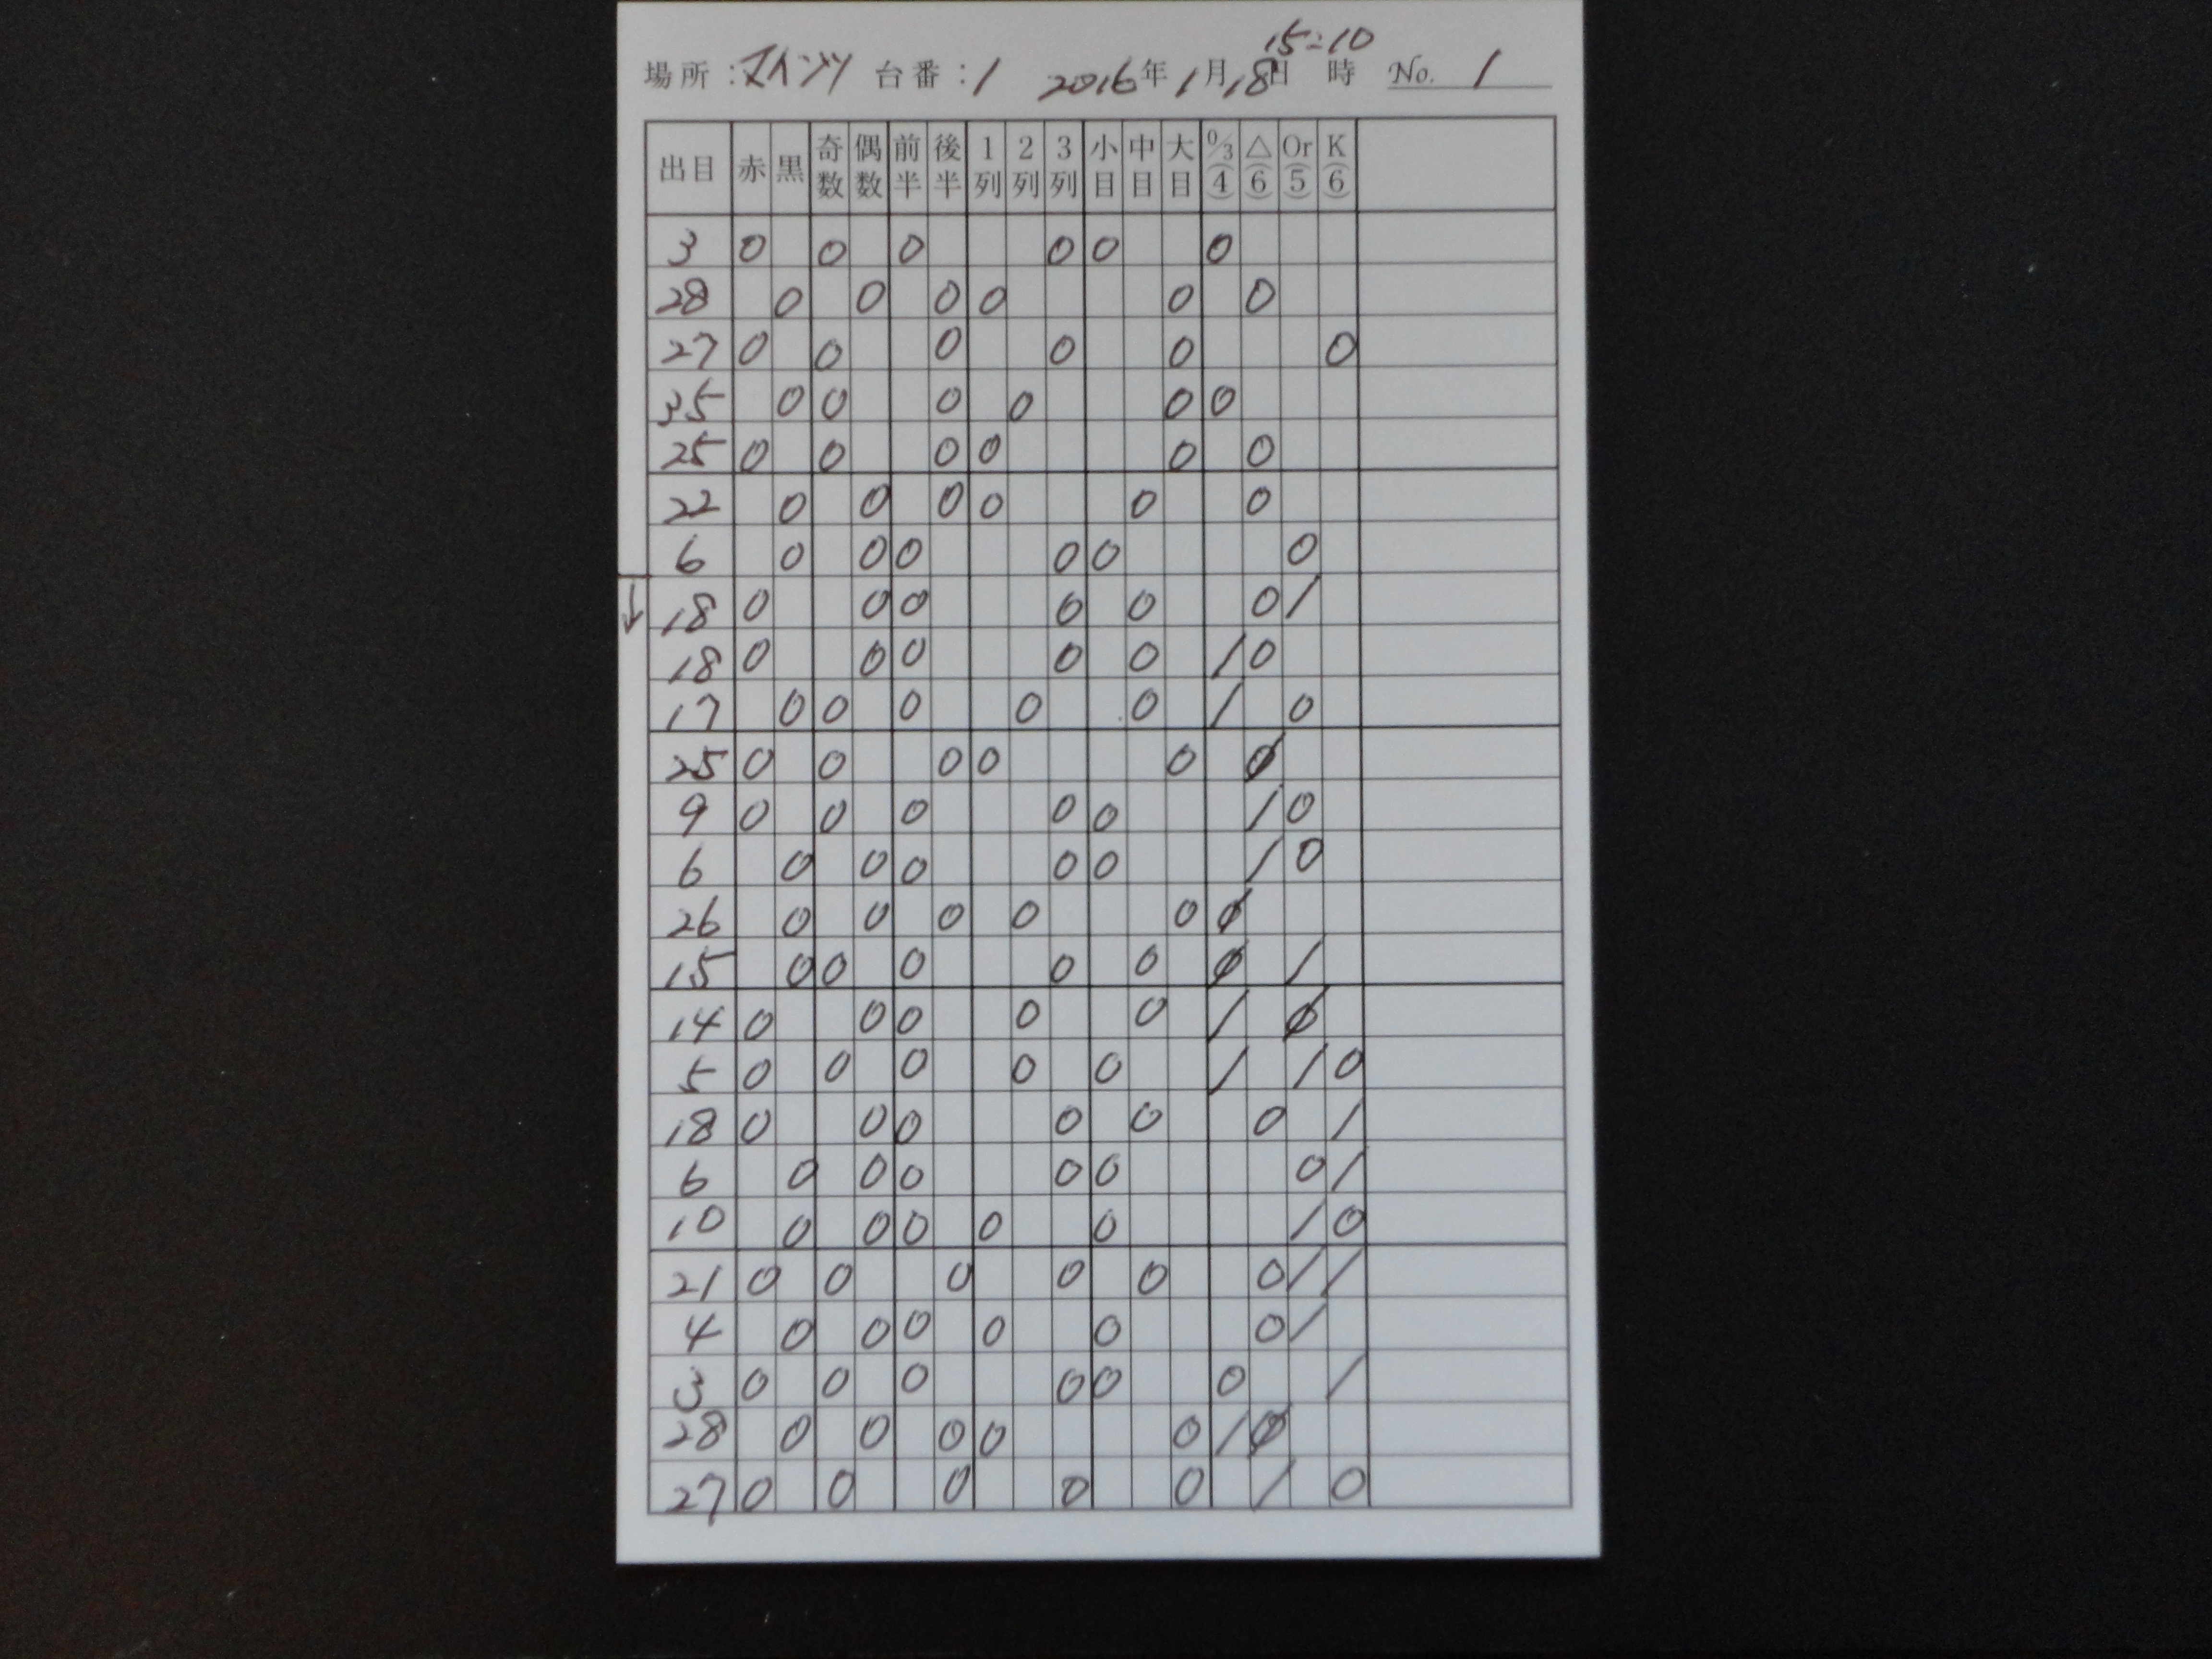 15:10
場所：マインツ 台番：1 2016年1月18日 時 No. 1
出目 赤 黒 奇数 偶数 前半 後半 1列 2列 3列 小目 中目 大目 0/3(4) △(6) Or(5) K(6)
3 0 0 0 0 0 0
28 0 0 0 0 0 0
27 0 0 0 0 0 0
35 0 0 0 0 0 0
25 0 0 0 0 0 0
22 0 0 0 0 0 0
6 0 0 0 0 0 0
↓ 18 0 0 0 0 0 0 /
18 0 0 0 0 0 / 0
17 0 0 0 0 0 / 0
25 0 0 0 0 0 Ø
9 0 0 0 0 0 / 0
6 0 0 0 0 0 / 0
26 0 0 0 0 0 Ø
15 0 0 0 0 0 Ø /
14 0 0 0 0 0 / Ø
5 0 0 0 0 0 / / 0
18 0 0 0 0 0 0 /
6 0 0 0 0 0 0 /
10 0 0 0 0 0 / 0
21 0 0 0 0 0 0 / /
4 0 0 0 0 0 0 /
3 0 0 0 0 0 0 /
28 0 0 0 0 0 / Ø
27 0 0 0 0 0 / 0